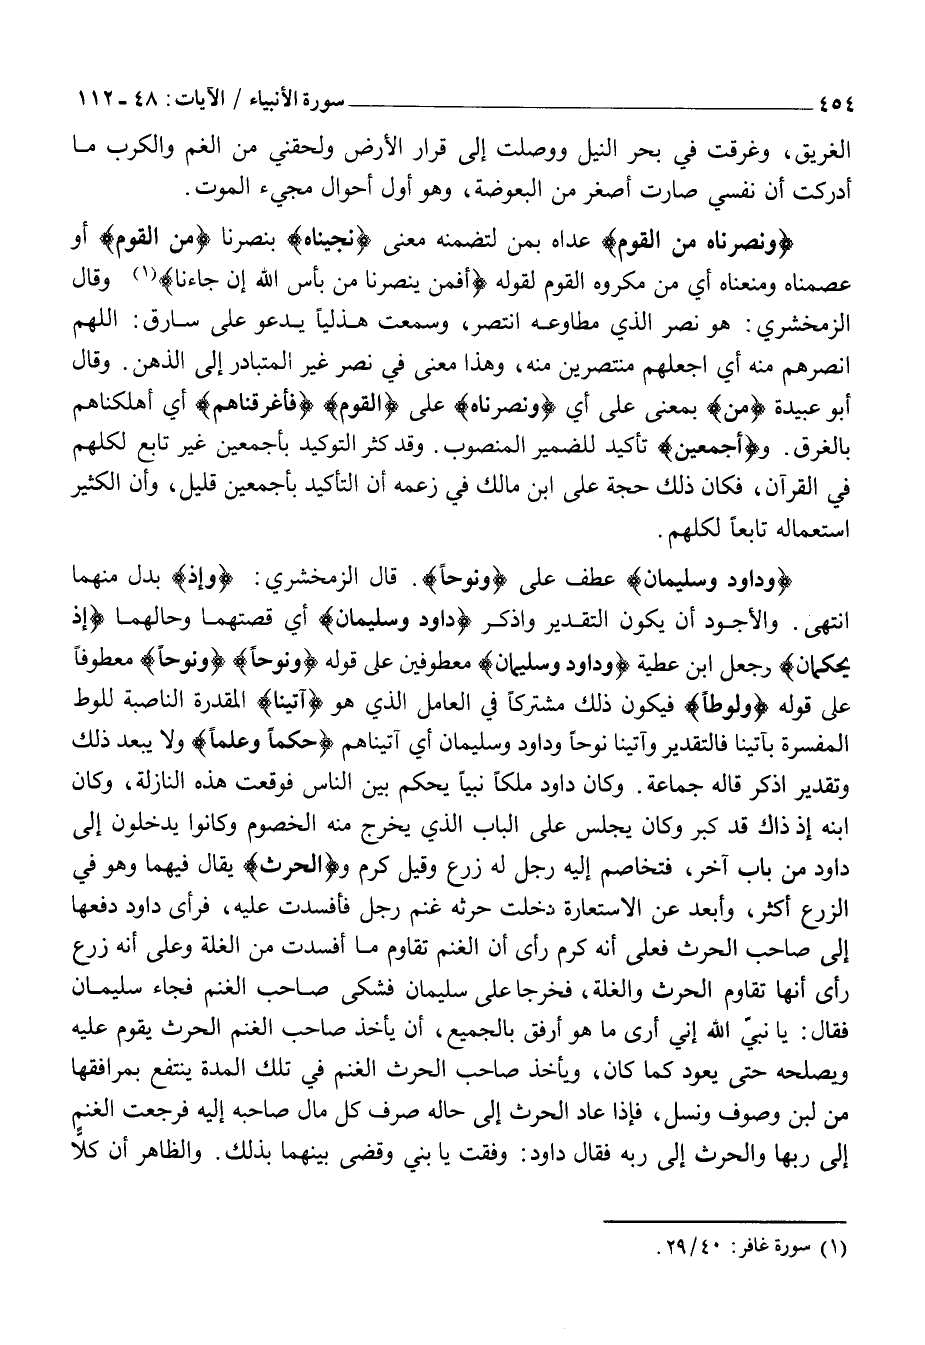 ٤٥٤ سورة الأنبياء / الآيات: ٤٨ - ١١٢
الغريق، وغرقت في بحر النيل ووصلت إلى قرار الأرض ولحقني من الغم والكرب ما
أدركت أن نفسي صارت أصغر من البعوضة، وهو أول أحوال مجيء الموت.
﴿ونصرناه من القوم﴾ عداه بمن لتضمنه معنى ﴿نجيناه﴾ بنصرنا ﴿من القوم﴾ أو
عصمناه ومنعناه أي من مكروه القوم لقوله ﴿أفمن ينصرنا من بأس الله إن جاءنا﴾(١) وقال
الزمخشري: هو نصر الذي مطاوعه انتصر، وسمعت هذلياً يدعو على سارق: اللهم
انصرهم منه أي اجعلهم منتصرين منه، وهذا معنى في نصر غير المتبادر إلى الذهن. وقال
أبو عبيدة ﴿من﴾ بمعنى على أي ﴿ونصرناه﴾ على ﴿القوم﴾ ﴿فأغرقناهم﴾ أي أهلكناهم
بالغرق. و﴿أجمعين﴾ تأكيد للضمير المنصوب. وقد كثر التوكيد بأجمعين غير تابع لكلهم
في القرآن، فكان ذلك حجة على ابن مالك في زعمه أن التأكيد بأجمعين قليل، وأن الكثير
استعماله تابعاً لكلهم.
﴿وداود وسليمان﴾ عطف على ﴿ونوحاً﴾. قال الزمخشري: ﴿وإذ﴾ بدل منهما
انتهى. والأجود أن يكون التقدير واذكر ﴿داود وسليمان﴾ أي قصتهما وحالهما ﴿إذ
يحكمان﴾ رجعل ابن عطية ﴿وداود وسليمان﴾ معطوفين على قوله ﴿ونوحاً﴾ ﴿ونوحاً﴾ معطوفاً
على قوله ﴿ولوطاً﴾ فيكون ذلك مشتركاً في العامل الذي هو ﴿آتينا﴾ المقدرة الناصبة للوط
المفسرة بآتينا فالتقدير وآتينا نوحاً وداود وسليمان أي آتيناهم ﴿حكماً وعلماً﴾ ولا يبعد ذلك
وتقدير اذكر قاله جماعة. وكان داود ملكاً نبياً يحكم بين الناس فوقعت هذه النازلة، وكان
ابنه إذ ذاك قد كبر وكان يجلس على الباب الذي يخرج منه الخصوم وكانوا يدخلون إلى
داود من باب آخر، فتخاصم إليه رجل له زرع وقيل كرم و﴿الحرث﴾ يقال فيهما وهو في
الزرع أكثر، وأبعد عن الاستعارة دخلت حرثه غنم رجل فأفسدت عليه، فرأى داود دفعها
إلى صاحب الحرث فعلى أنه كرم رأى أن الغنم تقاوم ما أفسدت من الغلة وعلى أنه زرع
رأى أنها تقاوم الحرث والغلة، فخرجا على سليمان فشكى صاحب الغنم فجاء سليمان
فقال: يا نبيّ الله إني أرى ما هو أرفق بالجميع، أن يأخذ صاحب الغنم الحرث يقوم عليه
ويصلحه حتى يعود كما كان، ويأخذ صاحب الحرث الغنم في تلك المدة ينتفع بمرافقها
من لبن وصوف ونسل، فإذا عاد الحرث إلى حاله صرف كل مال صاحبه إليه فرجعت الغنم
إلى ربها والحرث إلى ربه فقال داود: وفقت يا بني وقضى بينهما بذلك. والظاهر أن كلاًّ
(١) سورة غافر: ٢٩/٤٠.